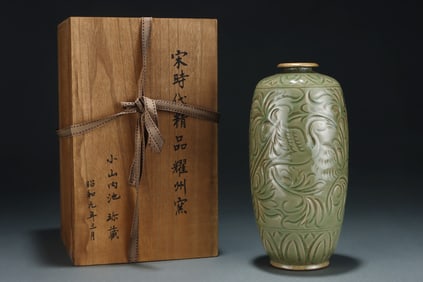 宋時代精品耀州窯
小山內池 珍藏
昭和九年三月